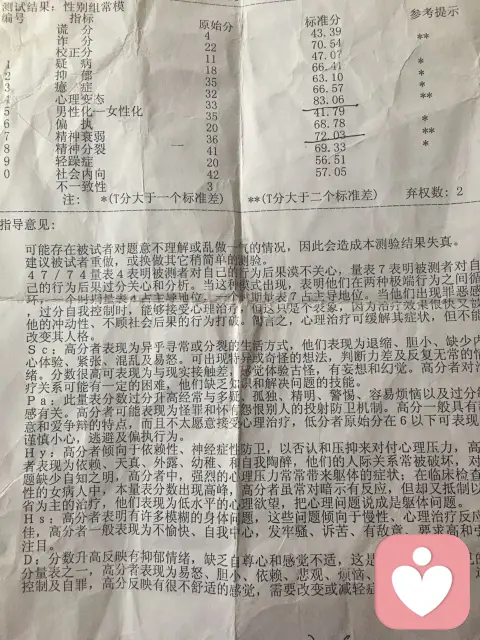 测试结果：性别组常模
编号 指标 原始分 标准分 参考提示
谎 分 4 43.39
诈 分 22 70.54 **
校正分 11 47.07
1 疑 病 18 66.41 *
2 抑 郁 35 63.10 *
3 癔 症 32 66.57 *
4 心理变态 33 83.06 **
5 男性化—女性化 35 41.79
6 偏 执 20 68.78 *
7 精神衰弱 36 72.03 **
8 精神分裂 41 69.33 *
9 轻躁症 20 56.51
0 社会内向 42 57.05
不一致性 3
注： *(T分大于一个标准差) **(T分大于二个标准差) 弃权数：2
指导意见：
可能存在被试者对题意不理解或乱做一气的情况，因此会造成本测验结果失真。
建议被试者重做，或换做其它稍简单的测验。
47/74量表4表明被测者对自己的行为后果漠不关心，量表7表明被测者对自
己的行为后果过分关心和分析。当这种模式出现，表明他们在两种极端行为之间循
环，一个时期量表4占主导地位，一个时期量表7占主导地位。当他们出现罪恶感
，过分自我控制时，能够接受心理治疗，但这只是个表象，因为治疗效果很快又被
他的冲动性、不顾社会后果的行为打破。简言之，心理治疗可缓解其症状，但不能
改变其人格。
Sc：高分者表现为异乎寻常或分裂的生活方式，他们表现为退缩、胆小、缺少内
心体验、紧张、混乱及易怒。可出现特异或奇怪的想法，判断力差及反复无常的情
绪。分数很高可表现为与现实接触差，感觉体验古怪，有妄想和幻觉。高分者对治
疗关系可能有一定的困难，他们缺乏知识和解决问题的技能。
Pa：此量表分数过分升高经常与多疑、孤独、精明、警惕、容易烦恼以及过分敏
感有关。高分者可能表现为怪罪和怀有怨恨别人的投射防卫机制。高分一般具有敌
意和爱争辩的特点，而且不太愿意接受心理治疗，低分者原始分在6以下可表现
谨慎小心，逃避及偏执行为。
Hy：高分者倾向于依赖性、神经症性防卫，以否认和压抑来对付心理压力，高
者表现为依赖、天真、外露、幼稚、和自我陶醉，他们的人际关系常被破坏，对
题缺少自知之明。高分者中，强烈的心理压力常常带来躯体的症状；在临床检查
性的女病人中，本量表分数出现高峰，高分者虽常对暗示有反应，但却又抵制以
省为主的治疗，他们表现为低水平的心理欲望，把心理问题说成是躯体问题。
Hs：高分者表明有许多模糊的身体问题，这些问题倾向于慢性、心理治疗反应
佳，高分者一般表现为不愉快、自我中心、发牢骚、诉苦、有敌意、要求高和
注目。
D：分数升高反映有抑郁情绪，缺乏自尊心和感觉不适，这是
分量表之一，高分者表现为易怒、胆小、依赖、悲观、烦恼、
控制及自罪，高分反映有很不舒适的感觉，需要改变或减轻症